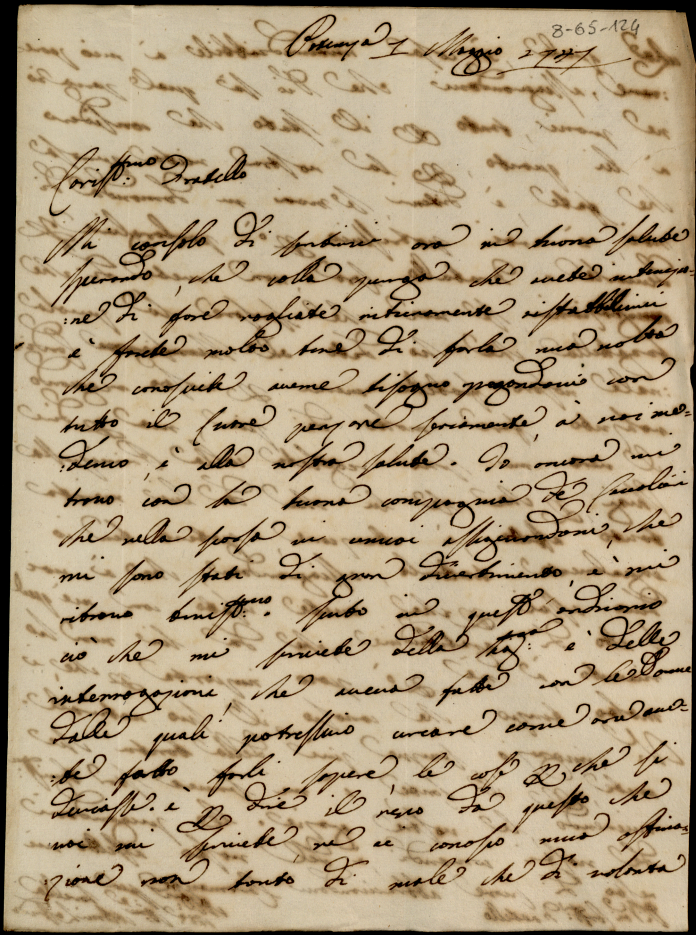 8-65-124
Cosenza 1 Maggio 1727
Cariss:mo Fratello
Mi consolo di sentirvi ora in buona salute
sperando, che colla purga che avete intenzio=
:ne di fare vogliate interamente ristabilirvi
è farete molto bene di farla una volta
che conoscete averne bisogno pregandovi con
tutto il Cuore pensare seriamente à voi me=
:desimo, è alla vostra salute. Io ancora mi
trovo con la buona compagnia de Cavalieri
che nella scorsa vi assicurandovi, che
mi sono stati di gran divertimento, è mi
ritrovo beniss:mo. Sento in quest' ordinario
ciò che mi scrivete della è delle
interrogazioni, che aveva fatte con le Donne
dalle quali potessimo cercare come ora
:be fatto farli sapere le cose che si
è dire il vero da questo che
voi mi scrivete, ne ci conosco una ostina=
:zione non tanto di male che di volontà